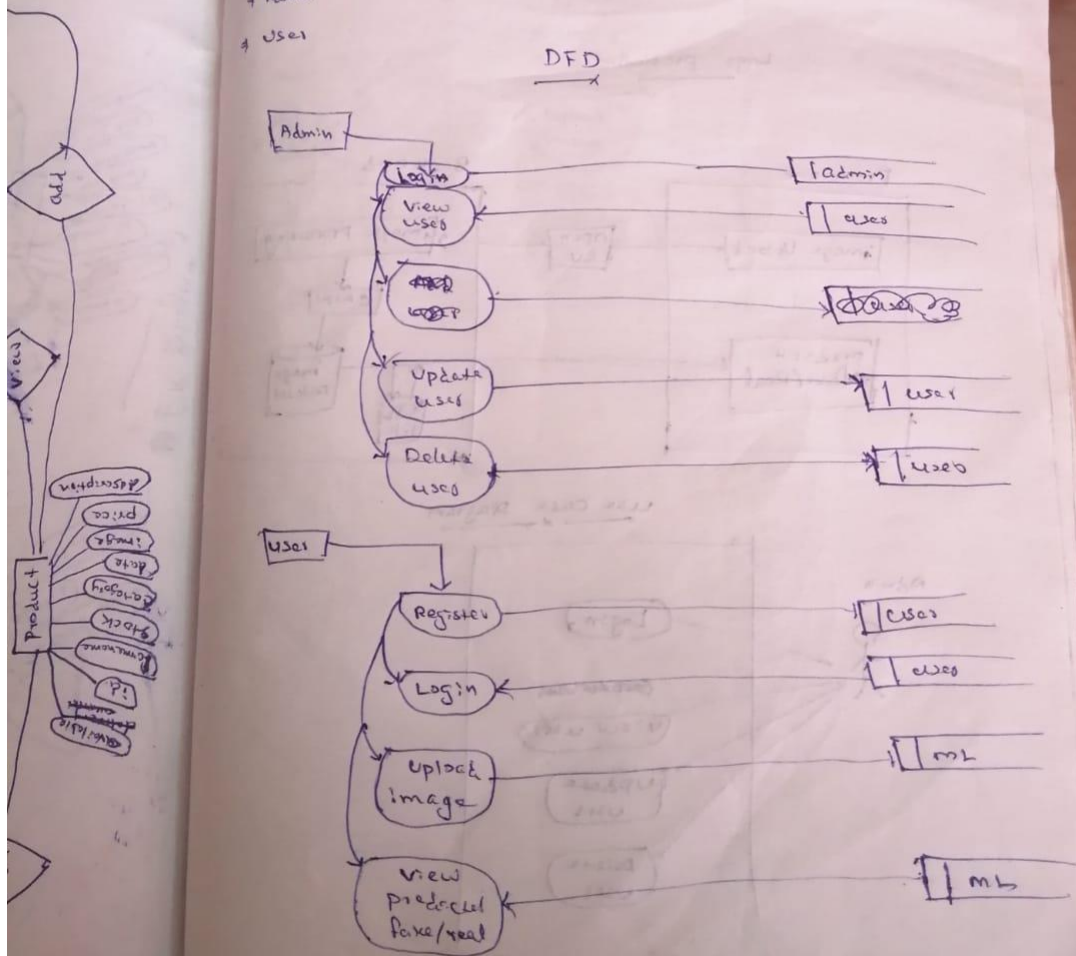 user
DFD
Admin
Login
admin
View
user
user
Update
user
user
Delete
user
user
user
Register
user
Login
user
Upload
image
mL
View
fake/real
mL
add
view
Product
description
price
image
date
category
stock
id
available